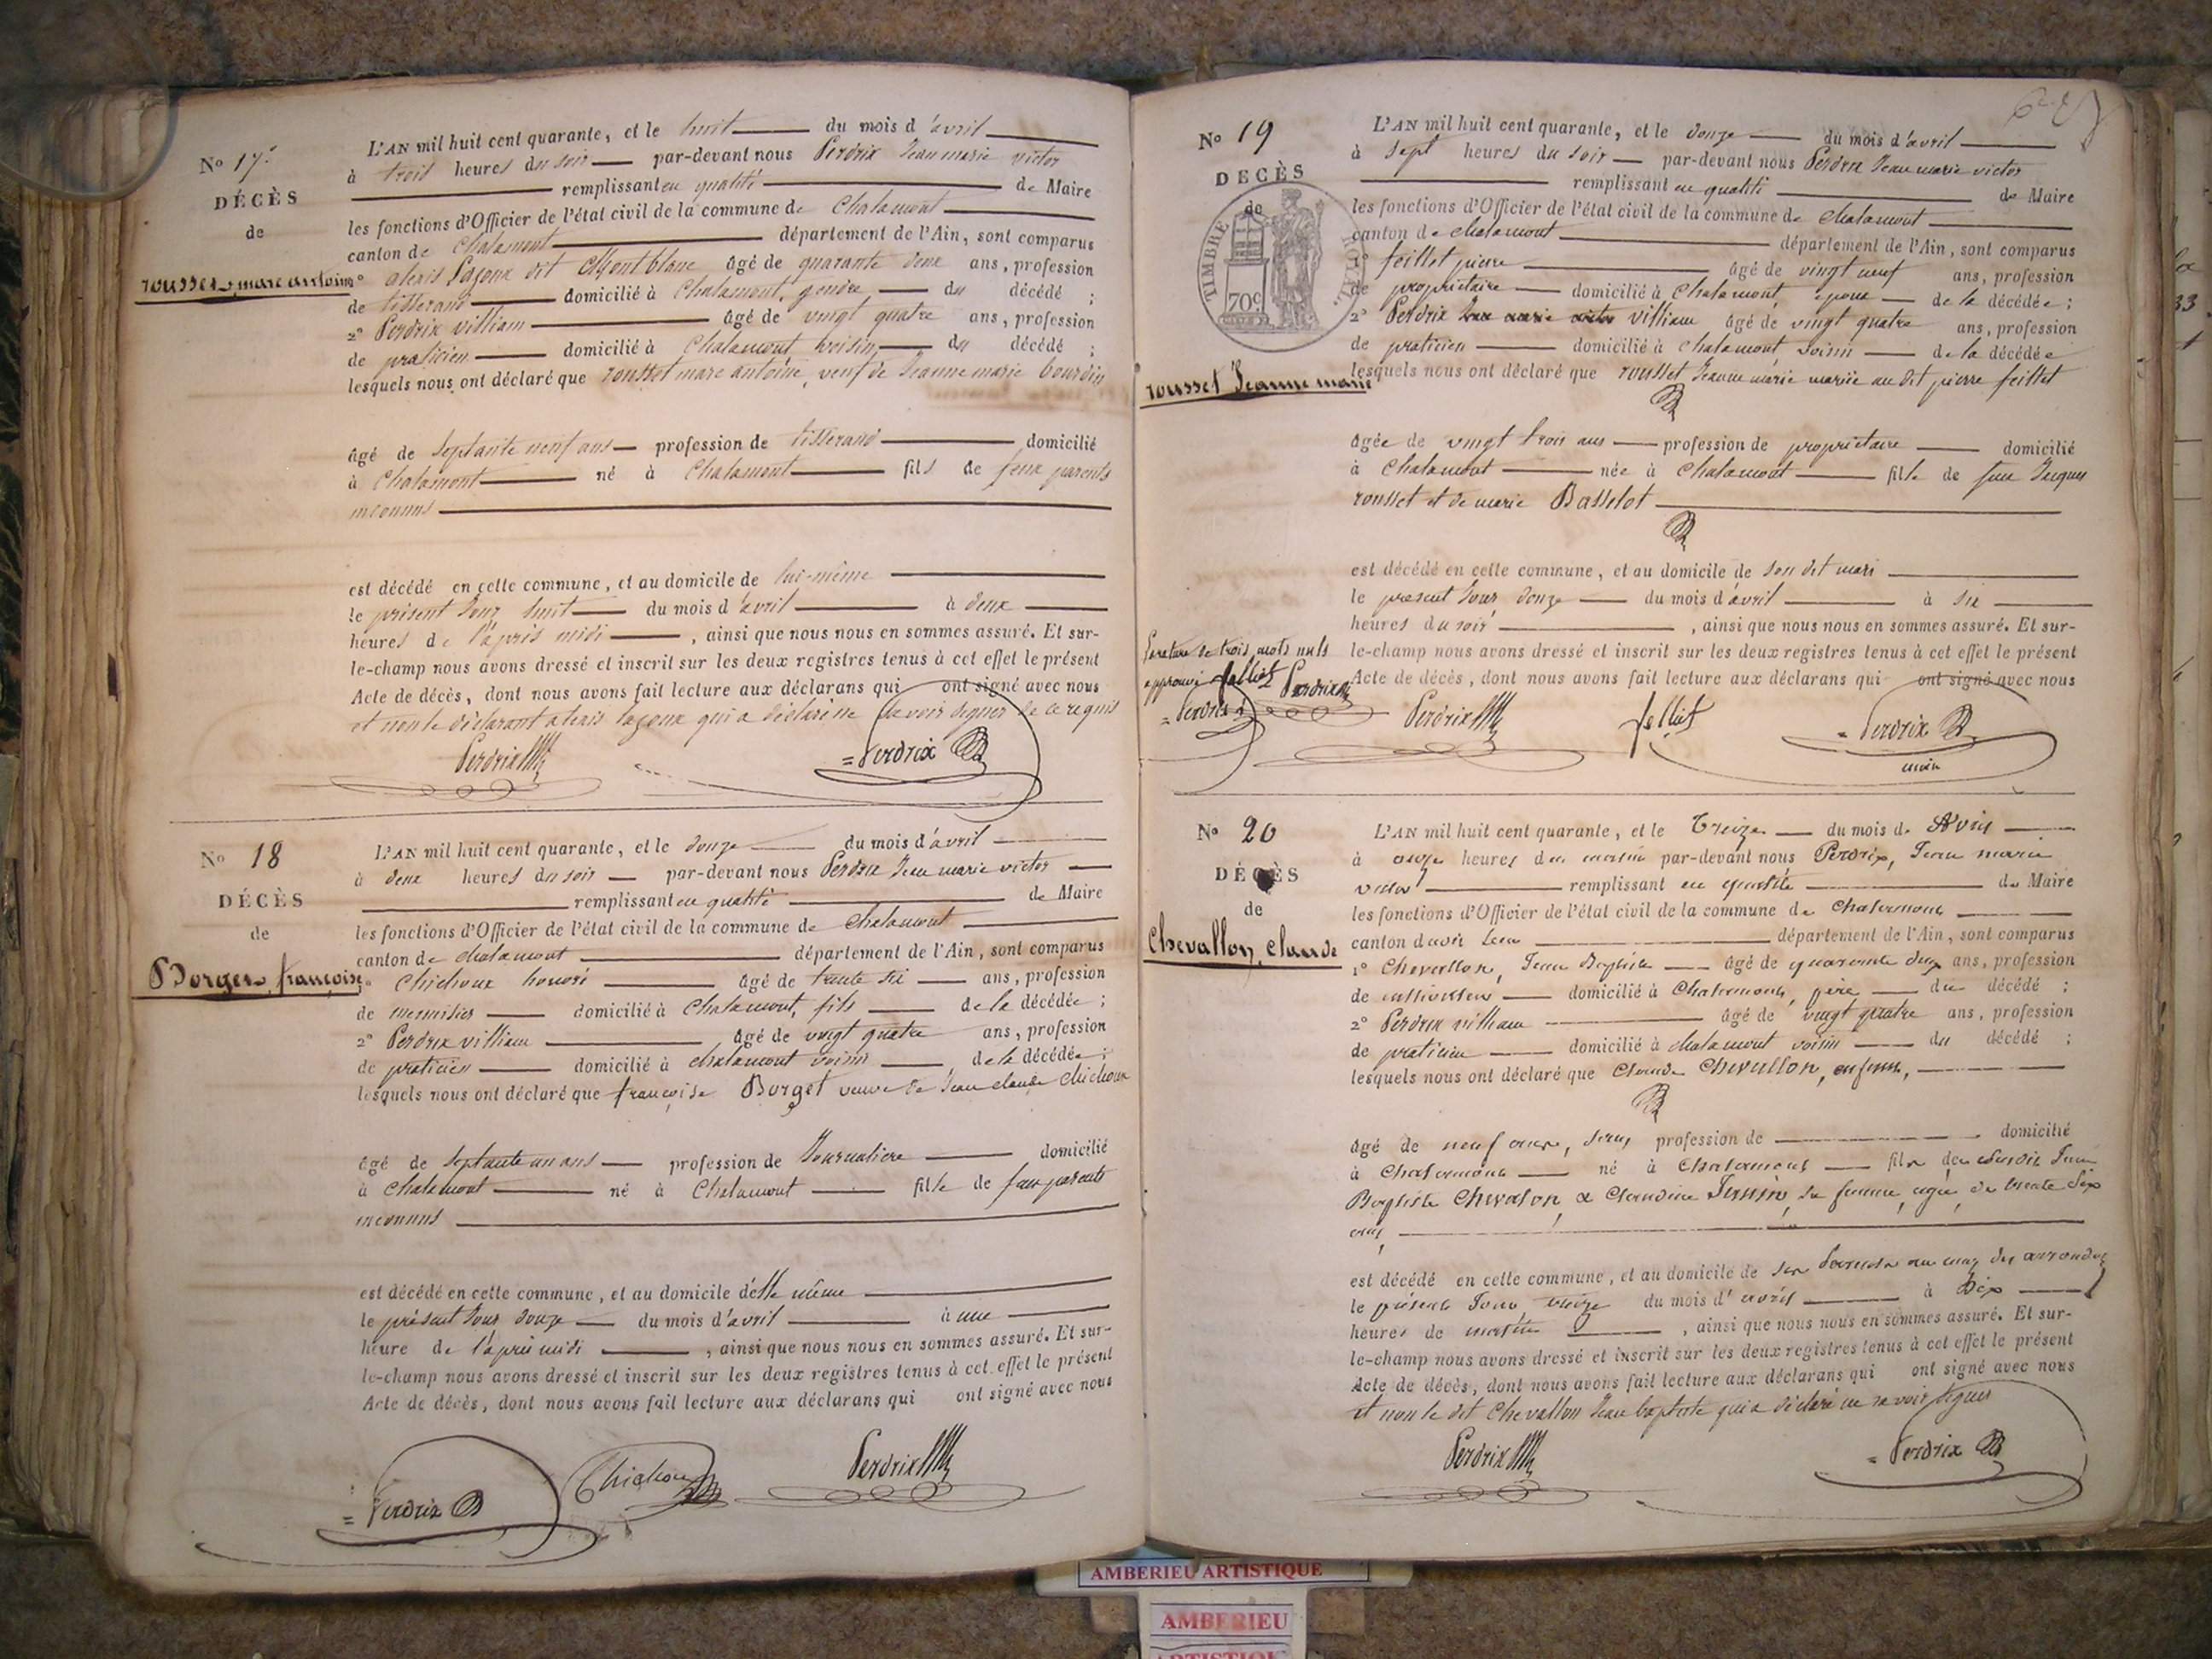 No 17.
DÉCÈS
de
rousset, marc antoine
L'AN mil huit cent quarante, et le huit du mois d'avril
à trois heures du soir par-devant nous Perdrix Jean marie victor
remplissant en qualité de Maire
les fonctions d'Officier de l'état civil de la commune de Chalamont
canton de Chalamont département de l'Ain, sont comparus
1° alexis Lajoux dit Montblanc âgé de quarante deux ans, profession
de tisserand domicilié à Chalamont, gendre du décédé ;
2° Perdrix villiam âgé de vingt quatre ans, profession
de praticien domicilié à Chalamont voisin du décédé ;
lesquels nous ont déclaré que rousset marc antoine, veuf de Jeanne marie bourdin
âgé de septante neuf ans profession de tisserand domicilié
à Chalamont né à Chalamont fils de feux parents
inconnus
est décédé en cette commune, et au domicile de lui-même
le présent Jour huit du mois d'avril à deux
heures de l'après midi , ainsi que nous nous en sommes assuré. Et sur-
le-champ nous avons dressé et inscrit sur les deux registres tenus à cet effet le présent
Acte de décès, dont nous avons fait lecture aux déclarans qui ont signé avec nous
et non le déclarant alexis lajoux qui a déclaré ne savoir signer de ce requis
Perdrix = Perdrix
No 18
DÉCÈS
de
Borget, françoise
L'AN mil huit cent quarante, et le douze du mois d'avril
à deux heures du soir par-devant nous Perdrix Jean marie victor
remplissant en qualité de Maire
les fonctions d'Officier de l'état civil de la commune de Chalamont
canton de chalamont département de l'Ain, sont comparus
1° Chichoux honoré âgé de trente six ans, profession
de menuisier domicilié à Chalamont, fils de la décédée ;
2° Perdrix villiam âgé de vingt quatre ans, profession
de praticien domicilié à chalamont voisin de la décédée ;
lesquels nous ont déclaré que françoise Borget veuve de Jean claude Chichoux
âgé de septante un ans profession de Journaliere domicilié
à Chalamont né à Chalamont fille de feux parents
inconnus
est décédé en cette commune, et au domicile d'elle même
le présent Jour douze du mois d'avril à une
heure de l'après midi , ainsi que nous nous en sommes assuré. Et sur-
le-champ nous avons dressé et inscrit sur les deux registres tenus à cet effet le présent
Acte de décès, dont nous avons fait lecture aux déclarans qui ont signé avec nous
= Perdrix Chichoux Perdrix
No 19
DÉCÈS
de
TIMBRE
70c
rousset Jeanne marie
L'AN mil huit cent quarante, et le douze du mois d'avril
à sept heures du soir par-devant nous Perdrix Jean marie victor
remplissant en qualité de Maire
les fonctions d'Officier de l'état civil de la commune de chalamont
canton de chalamont département de l'Ain, sont comparus
1° feillet pierre âgé de vingt neuf ans, profession
de propriétaire domicilié à Chalamont, epoux de la décédée ;
2° Perdrix Jean marie victor villiam âgé de vingt quatre ans, profession
de praticien domicilié à chalamont voisin de la décédée
lesquels nous ont déclaré que rousset Jeanne marie mariée au dit pierre feillet
âgée de vingt trois ans profession de propriétaire domicilié
à Chalamont née à Chalamont fille de feu Jacques
rousset et de marie Basselot
est décédé en cette commune, et au domicile de son dit mari
le présent Jour douze du mois d'avril à six
heures du soir , ainsi que nous nous en sommes assuré. Et sur-
le-champ nous avons dressé et inscrit sur les deux registres tenus à cet effet le présent
Acte de décès, dont nous avons fait lecture aux déclarans qui ont signé avec nous
de trois mots nuls
approuvé felliet Perdrix
= Perdrix
Perdrix felliet = Perdrix
maire
No 20
DÉCÈS
de
Chevallon, claude
L'AN mil huit cent quarante, et le Treize du mois d'Avril
à onze heures du matin par-devant nous Perdrix, Jean marie
victor remplissant en qualité de Maire
les fonctions d'Officier de l'état civil de la commune de Chalamont
canton dudit lieu département de l'Ain, sont comparus
1° Chevallon, Jean Baptiste âgé de quarante deux ans, profession
de domicilié à Chalamont, père du décédé ;
2° Perdrix villiam âgé de vingt quatre ans, profession
de praticien domicilié à chalamont voisin du décédé ;
lesquels nous ont déclaré que Claude Chevallon, enfant,
âgé de neuf ans, sans profession de domicilié
à Chalamont né à Chalamont fils de susdit Jean
Baptiste Chevalon, & Claudine Janin, sa femme, agée de trente six
ans,
est décédé en cette commune, et au domicile de ses Parents
le présent Jour treize du mois d'avril à Dix
heures de matin , ainsi que nous nous en sommes assuré. Et sur-
le-champ nous avons dressé et inscrit sur les deux registres tenus à cet effet le présent
Acte de décès, dont nous avons fait lecture aux déclarans qui ont signé avec nous
et non le dit Chevallon Jean baptiste qui a déclaré ne savoir signer
Perdrix = Perdrix
AMBERIEU ARTISTIQUE
AMBERIEU
ARTISTIQUE